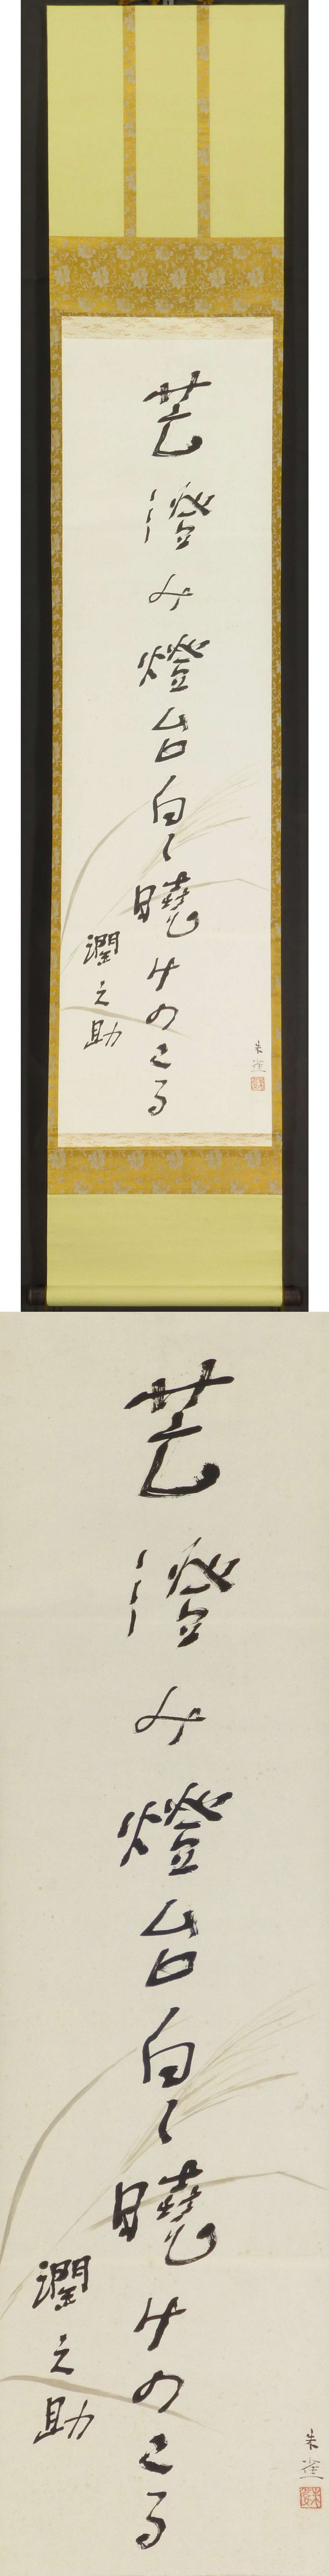 芒澄み燈台白く曉けのこる
潤之助
朱雀